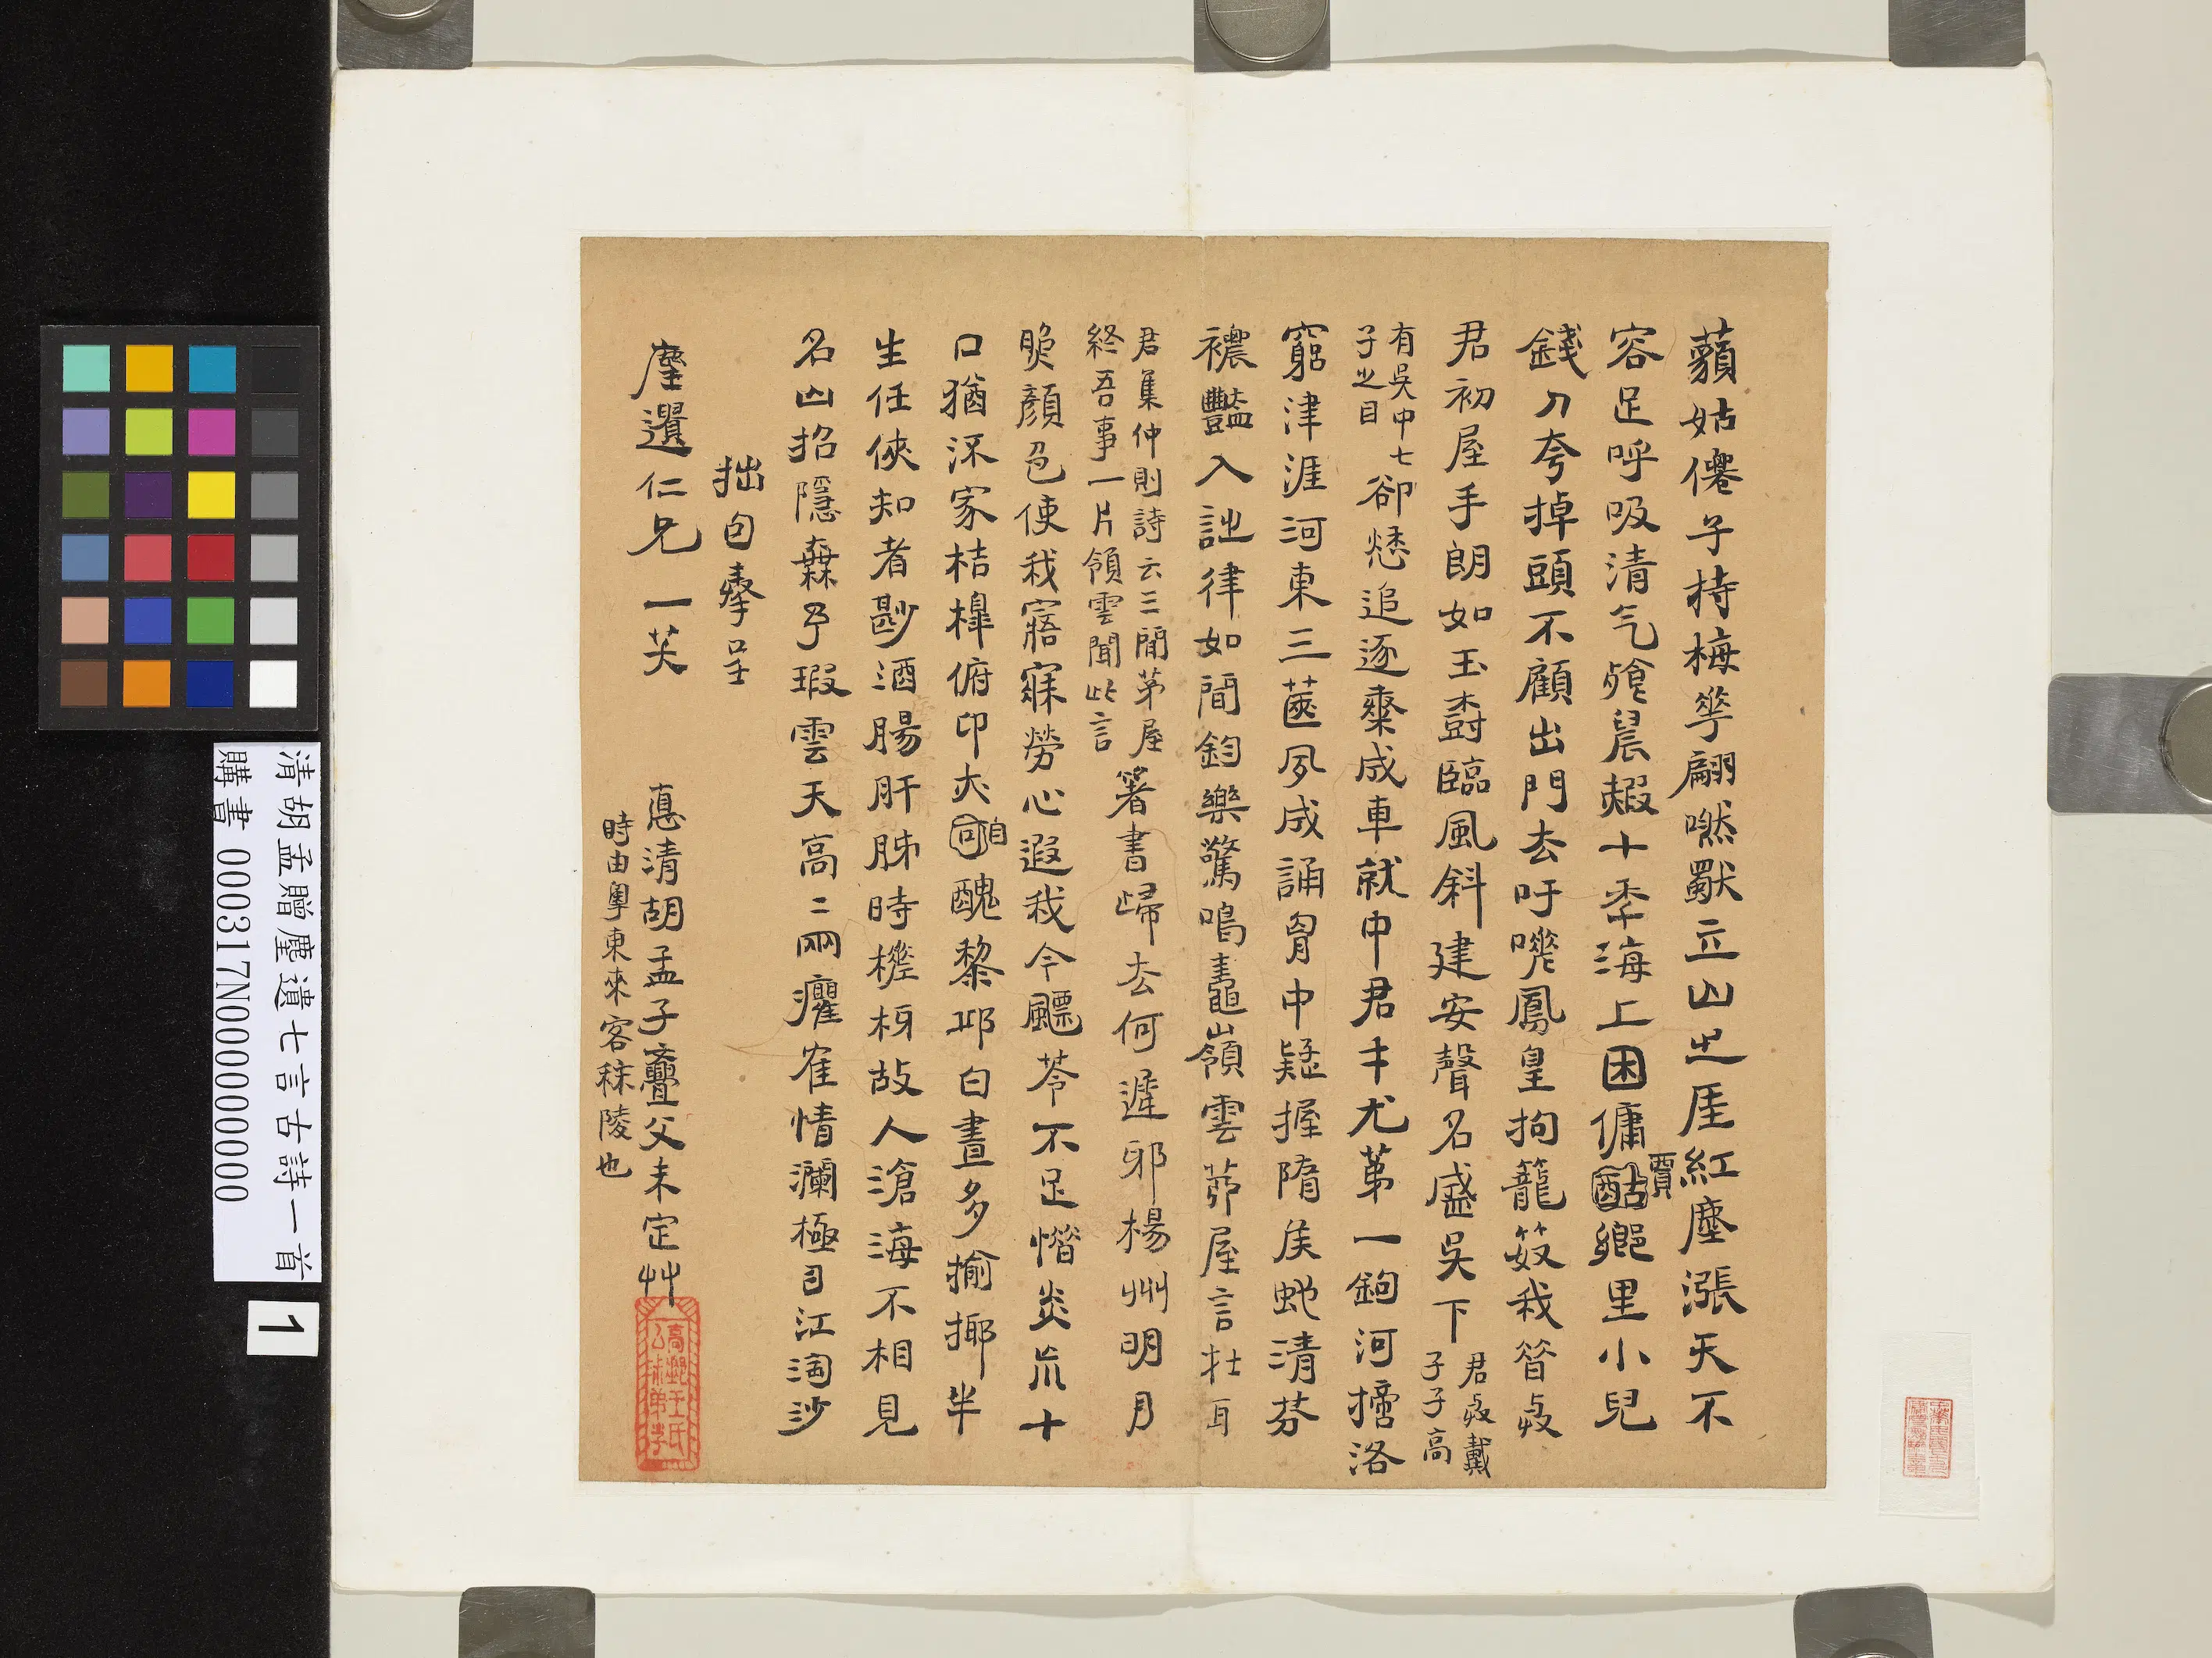 藐姑僊子持梅華翩嘫獸立山之厓紅塵漲天不
容足呼吸清气飧晨赮十秊海上困傭賈鄉里小兒
錢刀夸掉頭不顧出門去吁嘆鳳皇拘籠笯我昝
君初屋手朗如玉樹臨風斜建安聲名盛吳下
君戴
子子高
有吳中七
子之目
卻愻追逐椉成車就中君丰尤苐一鉤河擿洛
窮津涯河東三篋夙成誦胷中疑握隋矦蛇清芬
襛豔入詘律如聞鈞樂驚鳴鼃嶺雲茆屋言
君集仲則詩云三間茅屋
終吾事一片領雲聞此言
箸書歸去何遲邪楊州明月
脕顏色使我寤寐勞心遐我今飄苓不足惜炎炎十
口猶沶家桔槹俯卬夾自醜黎邱白晝多揄揶半
生任俠知者尟酒腸肝胏時槎枒故人滄海不相見
名山招隱橆予瑕雲天高二兩癯隺情瀾極目江淘沙
拙句奉呈
塵遺仁兄一笑
惪清胡孟子疊父未定艸
時由粵東來客秣陵也
高郵王氏
公㳟弟子
清胡孟贈塵遺七言古詩一首
購書 000317N000000000
1